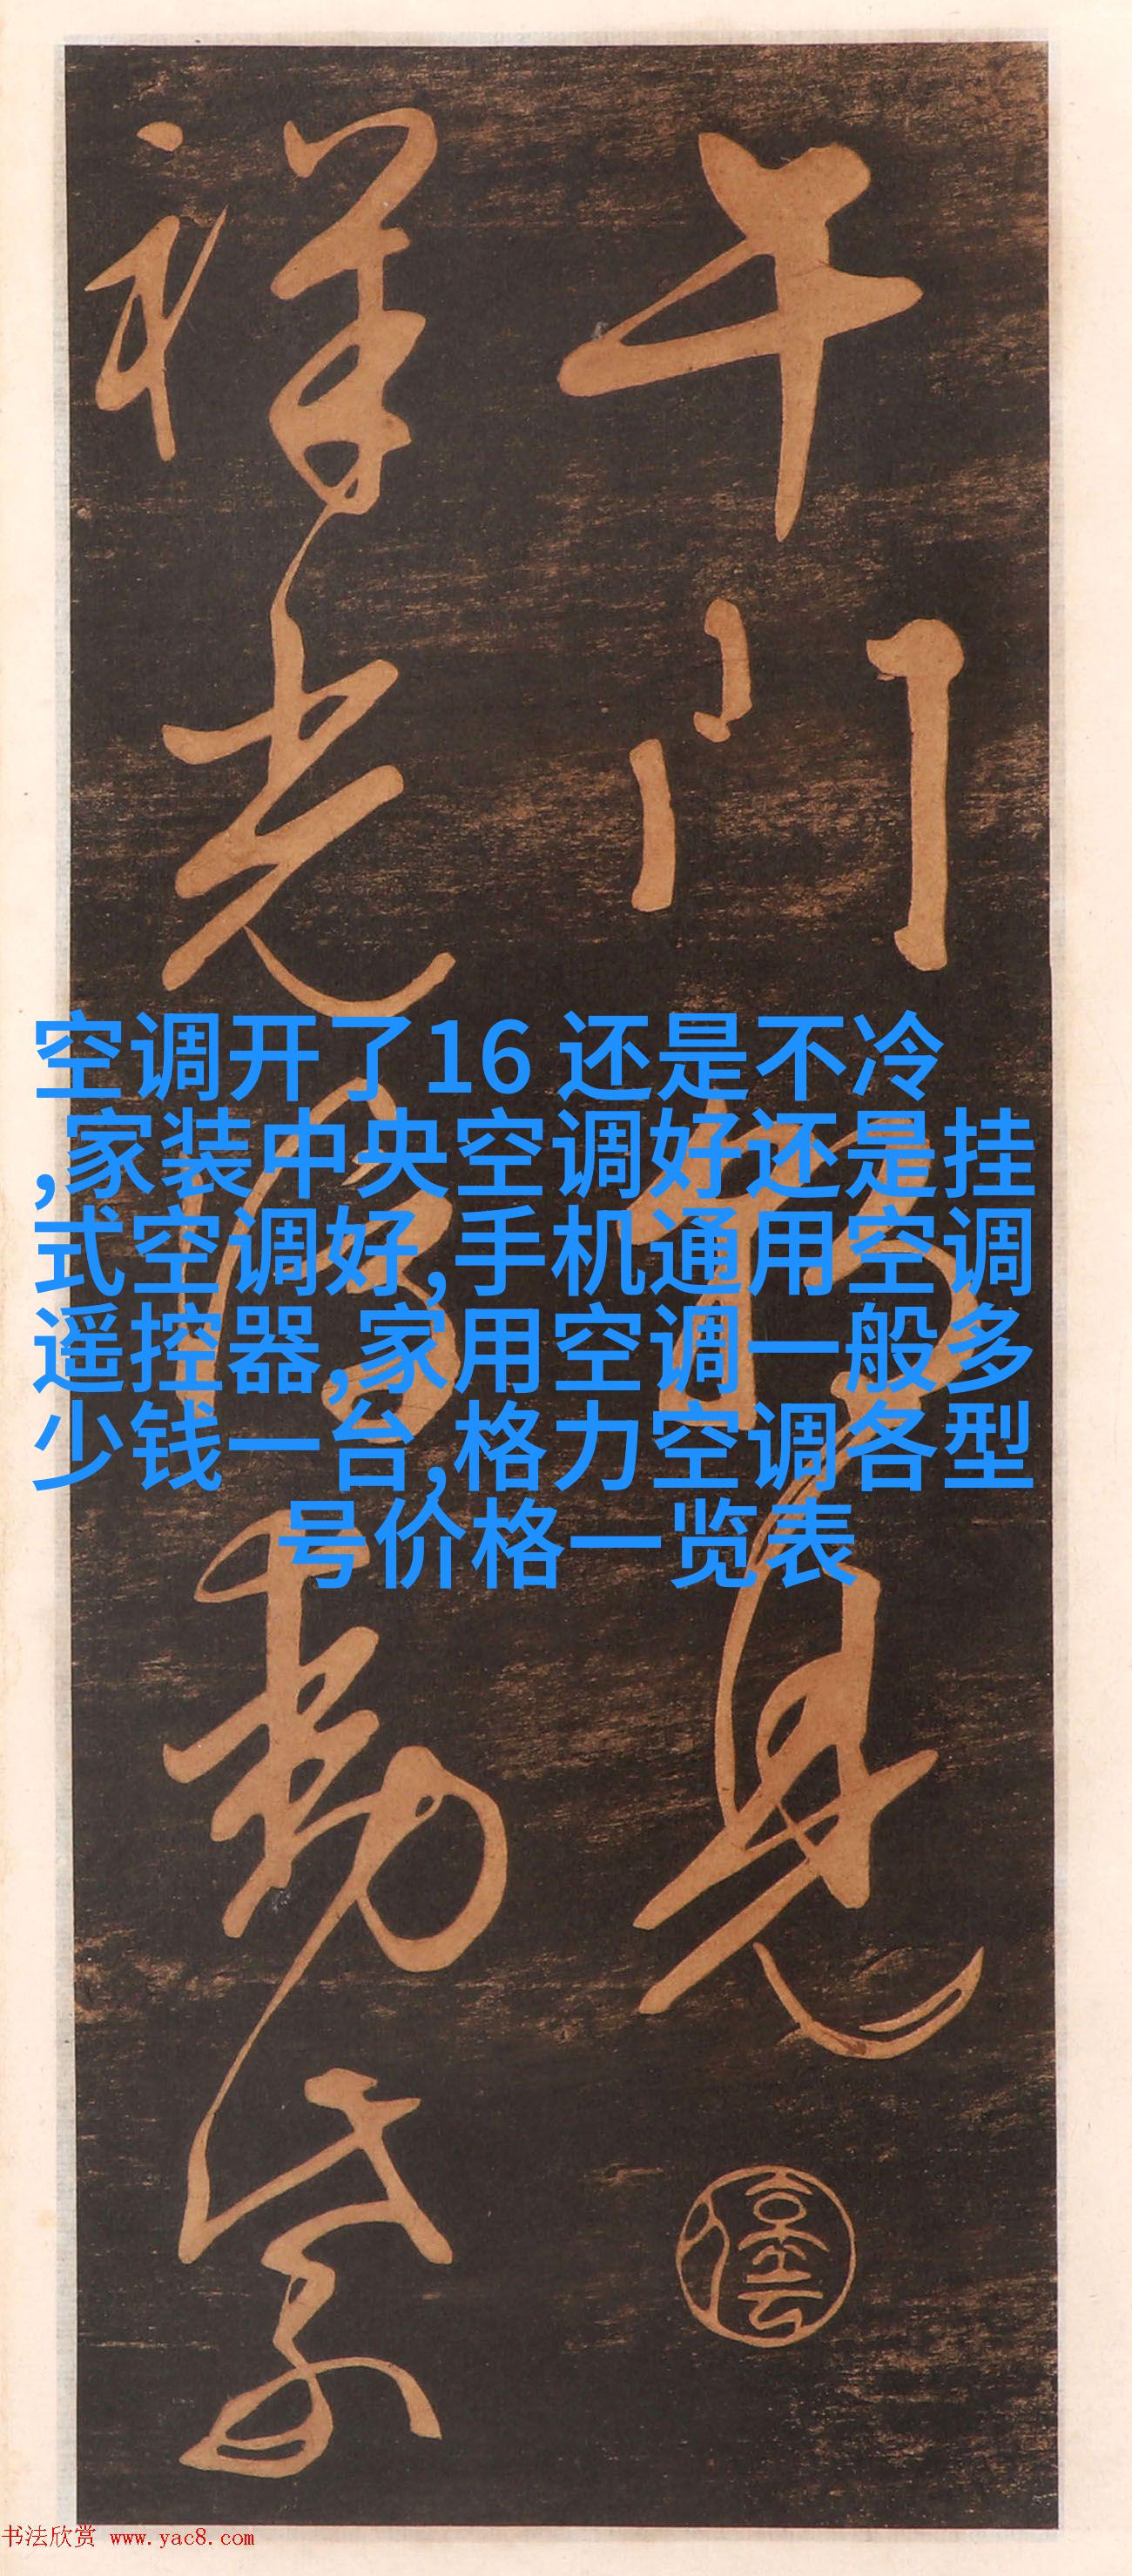 午门初见
祥光薄动紫
空调开了16 还是不冷
,家装中央空调好还是挂
式空调好,手机通用空调
遥控器,家用空调一般多
少钱一台,格力空调各型
号价格一览表
书法欣赏 www.yac8.com